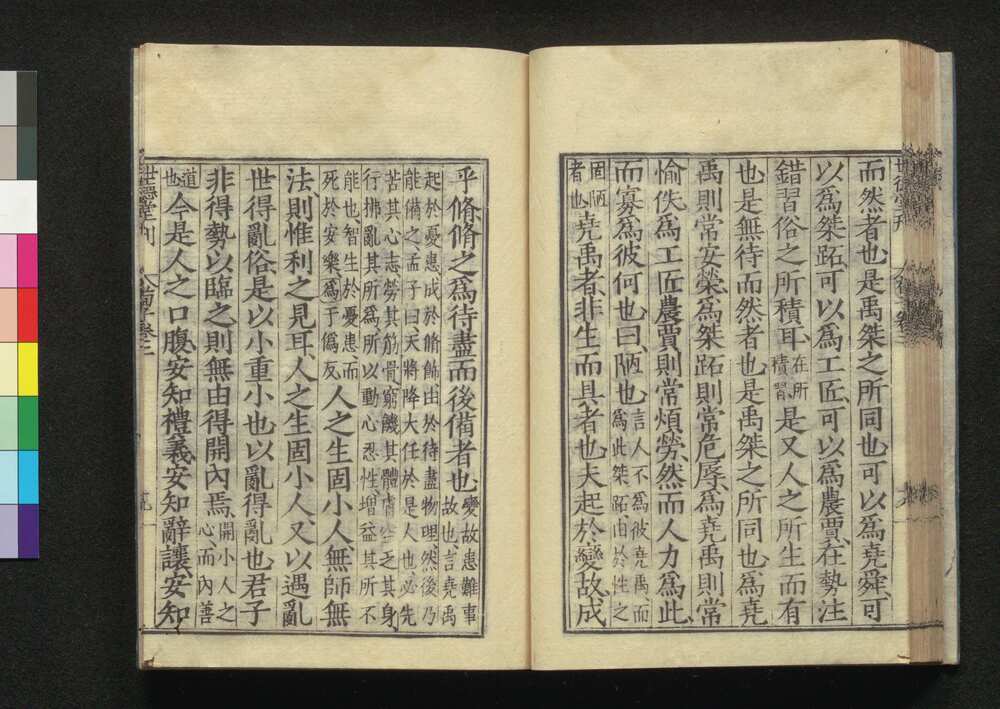 而然者也是禹桀之所同也可以爲堯舜可
以爲桀跖可以爲工匠可以爲農賈在勢注
錯習俗之所積耳在所積習是又人之所生而有
也是無待而然者也是禹桀之所同也爲堯
禹則常安榮爲桀跖則常危辱爲堯禹則常
愉佚爲工匠農賈則常煩勞然而人力爲此
而寡爲彼何也曰陋也言人不爲彼堯禹而爲此桀跖由於性之
固陋者也堯禹者非生而具者也夫起於變故成
乎脩脩之爲待盡而後備者也變故患難事故也言堯禹
起於憂患成於脩飾由於待盡物理然後乃能備之孟子曰天將降大任於是人也必先
苦其心志勞其筋骨窮餓其體膚空乏其身行拂亂其所爲所以動心忍性增益其所不
能也智生於憂患而死於安樂爲于僞反人之生固小人無師無
法則惟利之見耳人之生固小人又以遇亂
世得亂俗是以小重小也以亂得亂也君子
非得勢以臨之則無由得開內焉開小人之心而內善
道也今是人之口腹安知禮義安知辭讓安知
世德堂刊